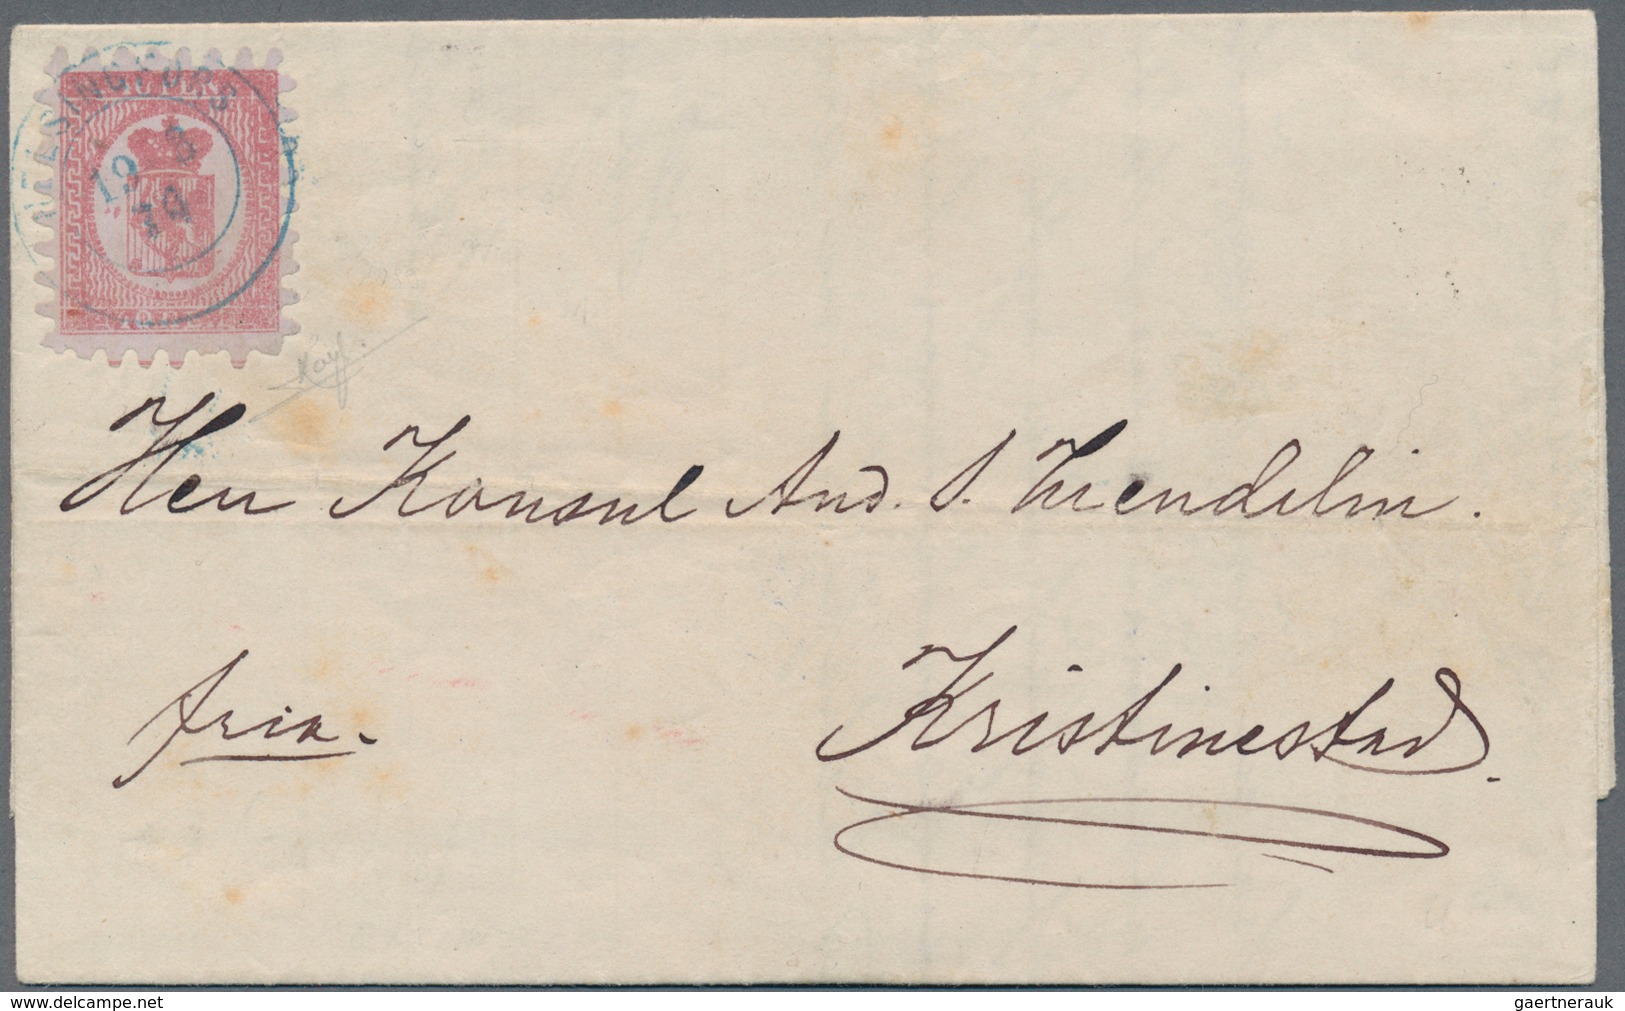 40 PEN.
HELSINGFORS
19 3
74
Herr Konsul And. S. Wendelin.
fria.
Kristinestad.
www.delcampe.net
gaertnerauk